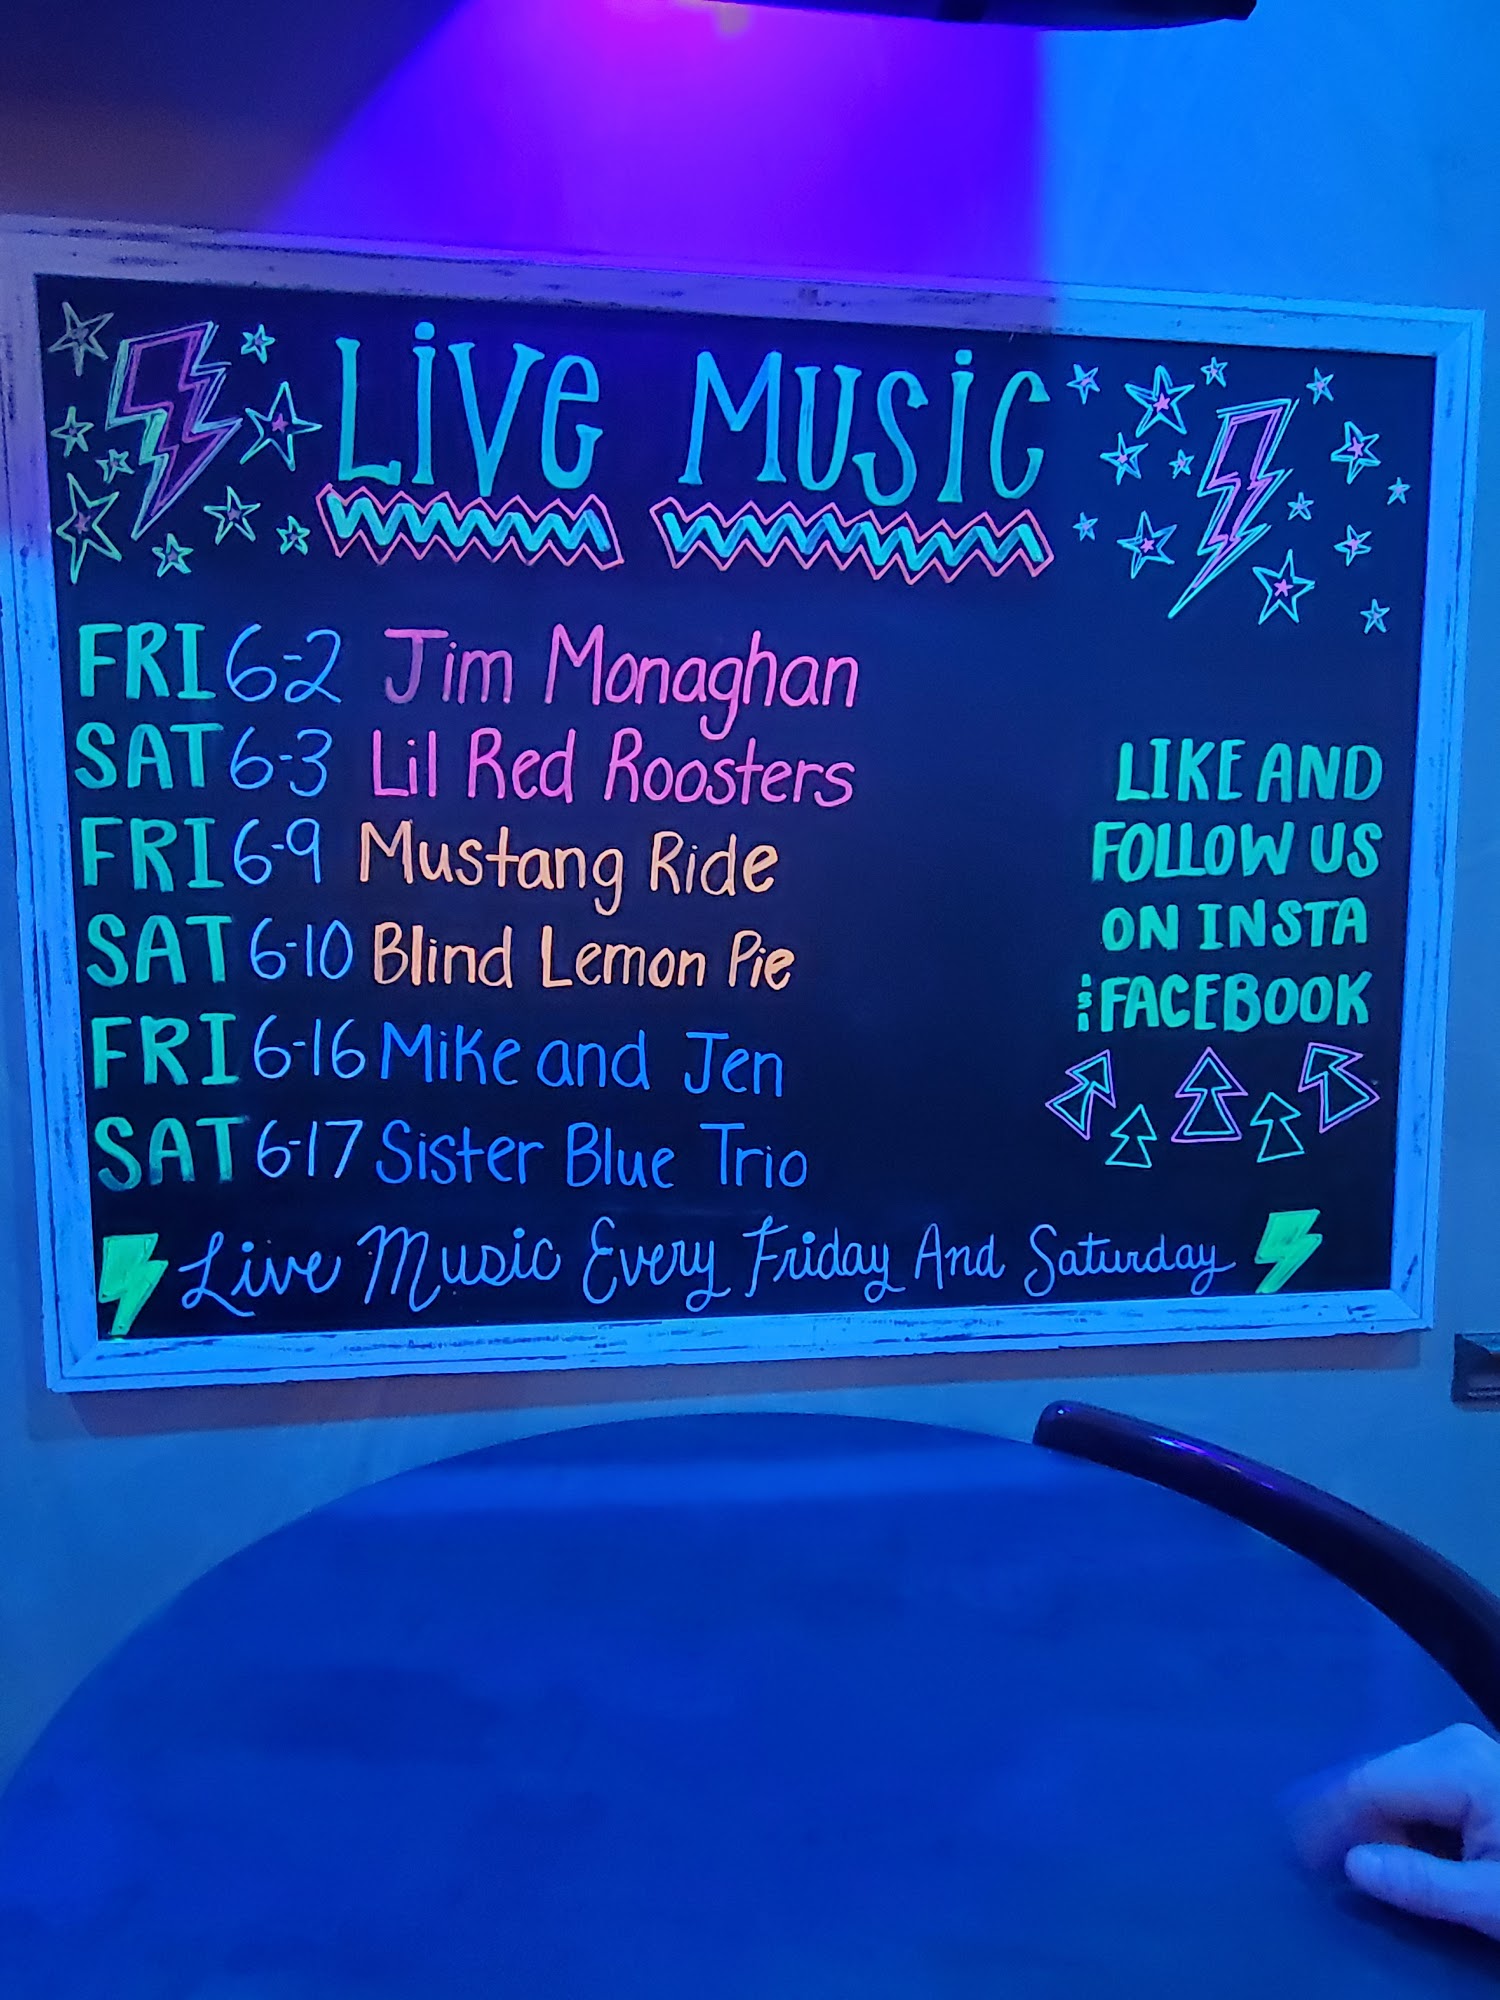 LiVe MUSiC
FRI 6-2 Jim Monaghan
SAT 6-3 Lil Red Roosters
FRI 6-9 Mustang Ride
SAT 6-10 Blind Lemon Pie
FRI 6-16 Mike and Jen
SAT 6-17 Sister Blue Trio
LIKE AND
FOLLOW US
ON INSTA
FACEBOOK
Live Music Every Friday And Saturday